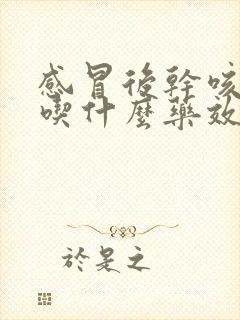 感冒後幹咳
喫什麼藥效
於是之